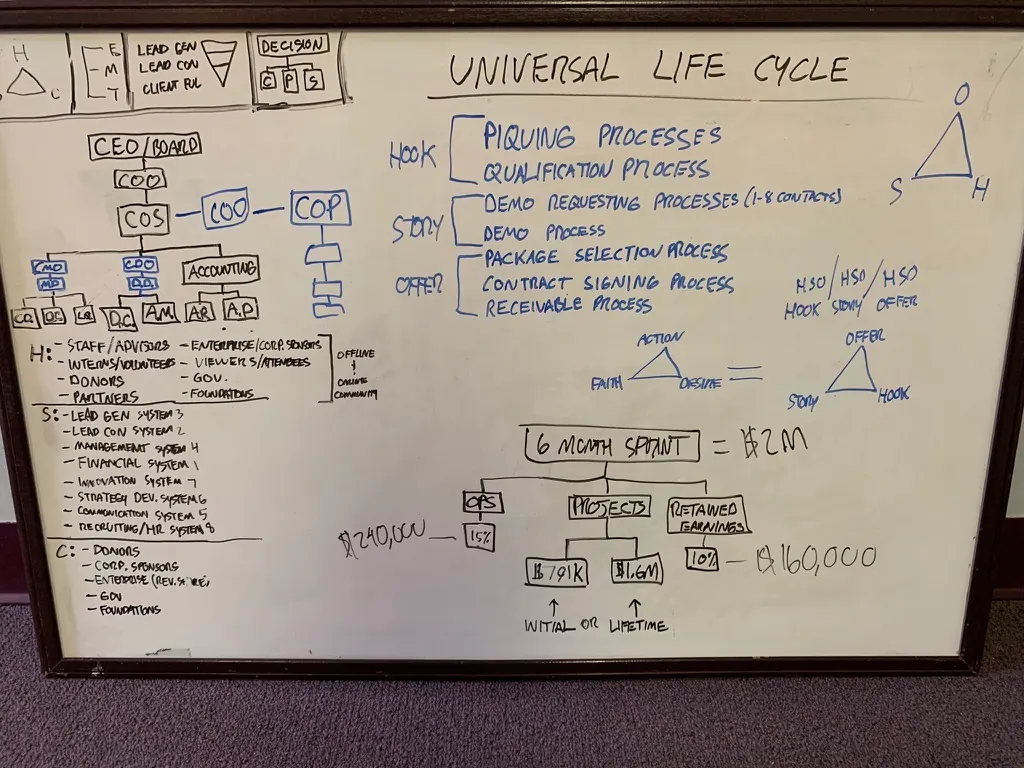 H
C
E
M
T
LEAD GEN
LEAD CON
CLIENT FUL
DECISION
C P S
UNIVERSAL LIFE CYCLE
CEO/BOARD
COO
COS - COO - COP
CMO CDO ACCOUNTING
MD D.D.
D.C A.M. A.R A.P
HOOK
PIQUING PROCESSES
QUALIFICATION PROCESS
STORY
DEMO REQUESTING PROCESSES (1-8 CONTACTS)
DEMO PROCESS
OFFER
PACKAGE SELECTION PROCESS
CONTRACT SIGNING PROCESS
RECEIVABLE PROCESS
O
S H
HSO/HSO/HSO
HOOK STORY OFFER
ACTION
FAITH DESIRE
=
OFFER
STORY HOOK
H: - STAFF/ADVISORS - ENTERPRISE/CORP. SPONSORS
- INTERNS/VOLUNTEERS - VIEWERS/ATTENDEES
- DONORS - GOV.
- PARTNERS - FOUNDATIONS
OFFLINE
+
ONLINE
COMMUNITY
S: - LEAD GEN SYSTEM 3
- LEAD CON SYSTEM 2
- MANAGEMENT SYSTEM 4
- FINANCIAL SYSTEM 1
- INNOVATION SYSTEM 7
- STRATEGY DEV. SYSTEM 6
- COMMUNICATION SYSTEM 5
- RECRUITING/HR SYSTEM 8
C: - DONORS
- CORP. SPONSORS
- ENTERPRISE (REV.
- GOV
- FOUNDATIONS
6 MONTH SPRINT = $2M
OPS PROJECTS RETAINED
EARNINGS
$240,000 - 15% 10% - $160,000
$791K $1.6M
INITIAL OR LIFETIME